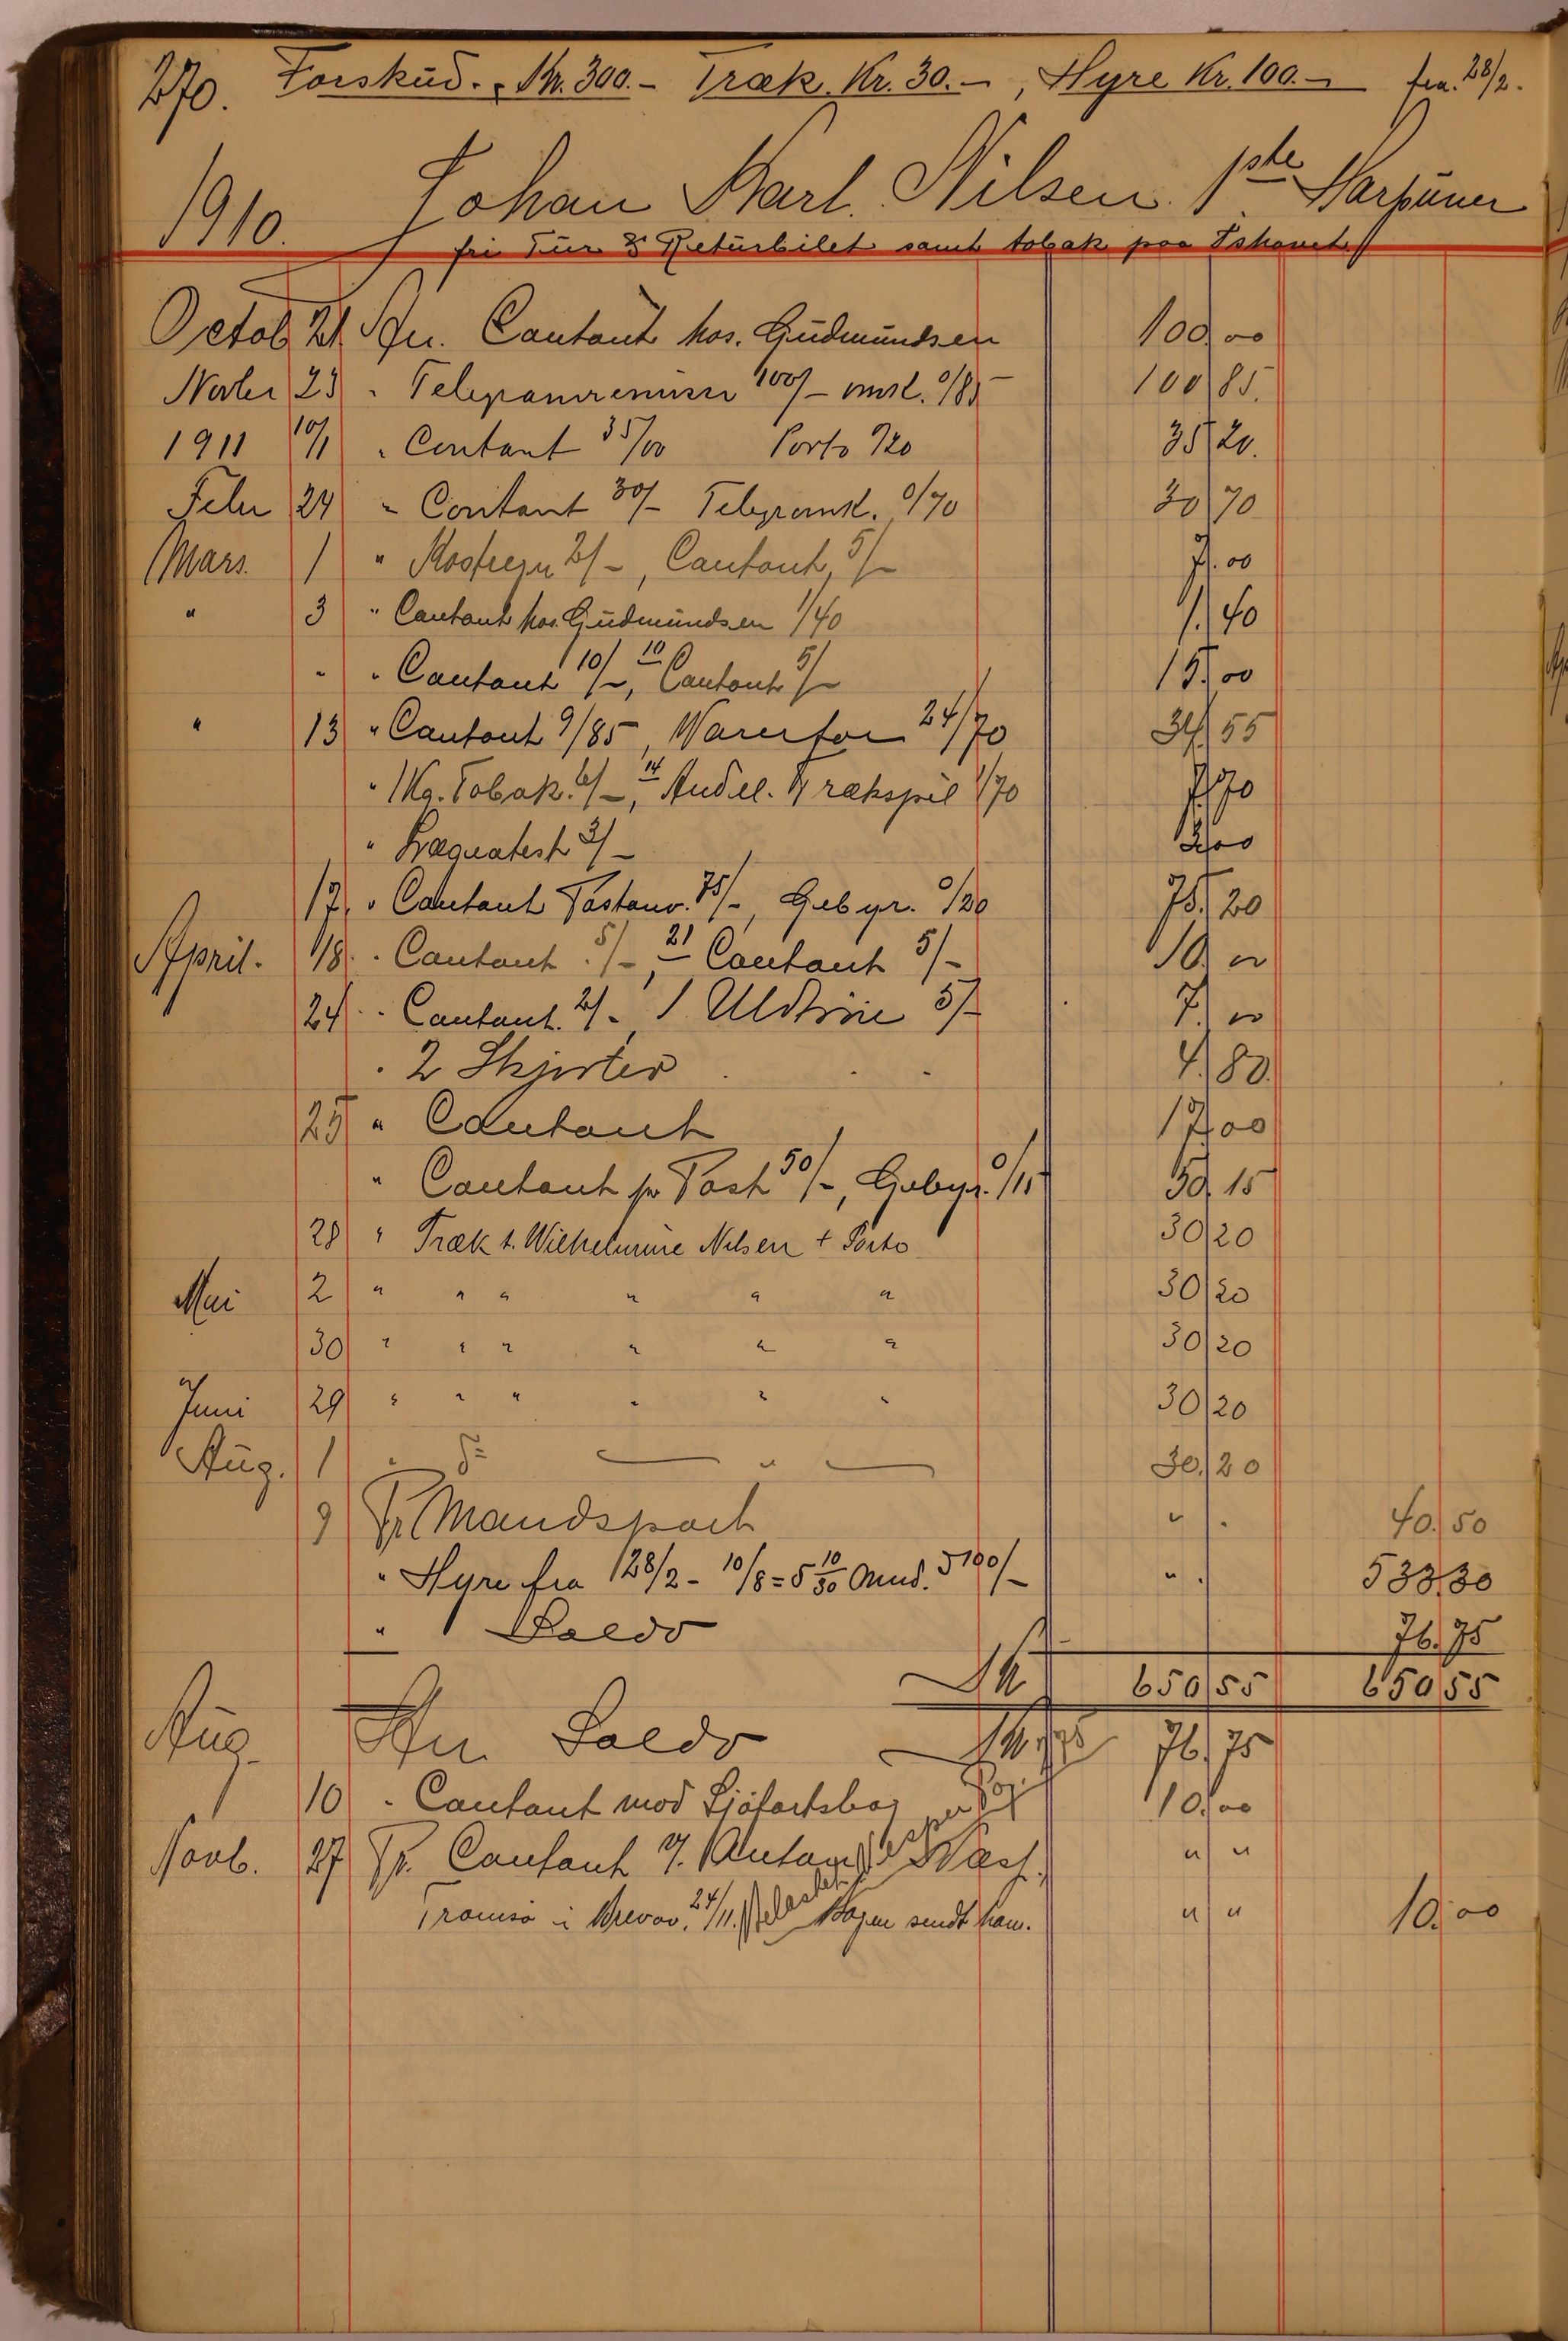 270. Forskud. Kr. 300.- Træk. Kr. 30.-, Hyre Kr. 100.- fra. 28/2.
1910. Johan Karl. Nilsen. 1ste Harpuner
fri Tur & Returbilet samt tobak paa Ishavet
Octob 21 An. Contant hos. Gudmundsen 100,00
Novbr 23 " Telegramremisse 100/- omk. 0/85 100 85.
1911 10/1 " Contant 35/00 Porto 0/20 35 20.
Febr 24 " Contant 30/- Telegromk. 0/70 30 70
Mars. 1 " 2/-, Contant, 5/- 7.00
" 3 " Contant hos. Gudmundsen 1/40 1.40
" " Contant 10/-, 10 Contant 5/- 15.00
" 13 " Contant 9/85, Varer 24/70 34.55
" 1 Kg. Tobak. 6/-, 14 Andel. Trækspil 1/70 7.70
" Lægeatest 3/- 3.00
17. " Contant Postanv. 75/-, Gebyr. 0/20 75.20
April. 18. " Contant 5/-, 21 Contant 5/- 10 00
24 " Contant. 2/-, 1 Uldtrøie 5/- 7. 00
" 2 Skjorter 4.80
25 " Contant 17.00
" Contant pr Post 50/-, Gebyr. 0/15 50.15
28 " Træk t. Wilhelmine Nilsen + Porto 30 20
Mai 2 " " " " " " 30 20
30 " " " " " " 30 20
Juni 29 " " " " " " 30 20
Aug. 1 " do — " — 30.20
9 Pr. Mandspart " . 40.50
" Hyre fra 28/2 - 10/8 = 5 10/30 Mnd. à 100/- " . 533.30
" Saldo 76.75
Kr 650 55 650 55
Aug. An Saldo Kr. 76.75
10 " Contant mod Sjøfartsbog 10.00
Novb. 27 Pr. Contant f. Anton Jespersen Næss, " "
Tromsø i Brevov. 24/11. Bogen sendt ham. " " 10.00